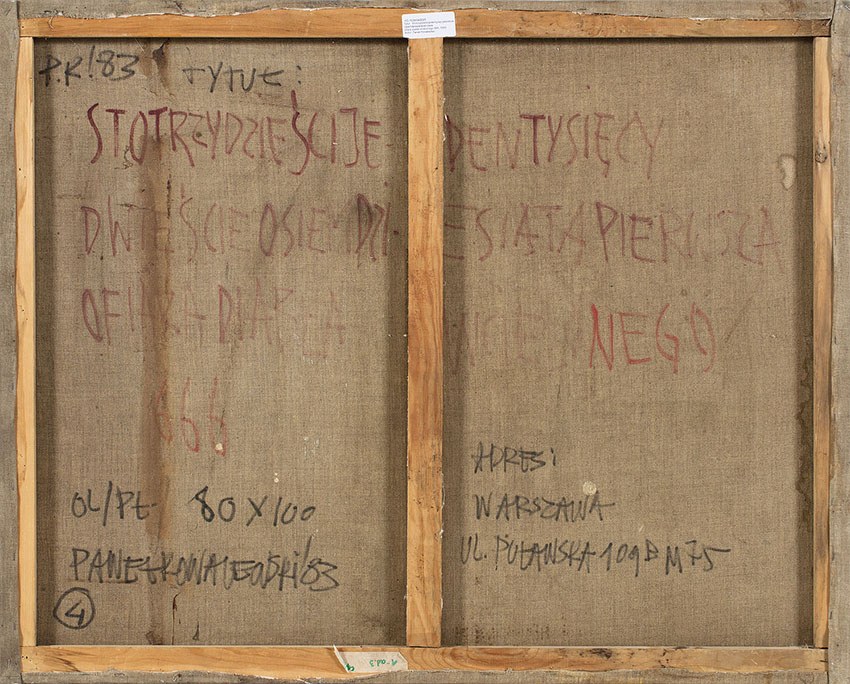 P.K!83 TYTUŁ:
STOTRZYDZIEŚCIJEDENTYSIĘCY
DWIEŚCIEOSIEMDZIESIĄTAPIERWSZA
OFIARA DIABŁA NEGO
666
OL/PŁ 80 X 100
PAWEŁKOWALEWSKI/83
4
ADRES:
WARSZAWA
UL. PUŁAWSKA 109B M75